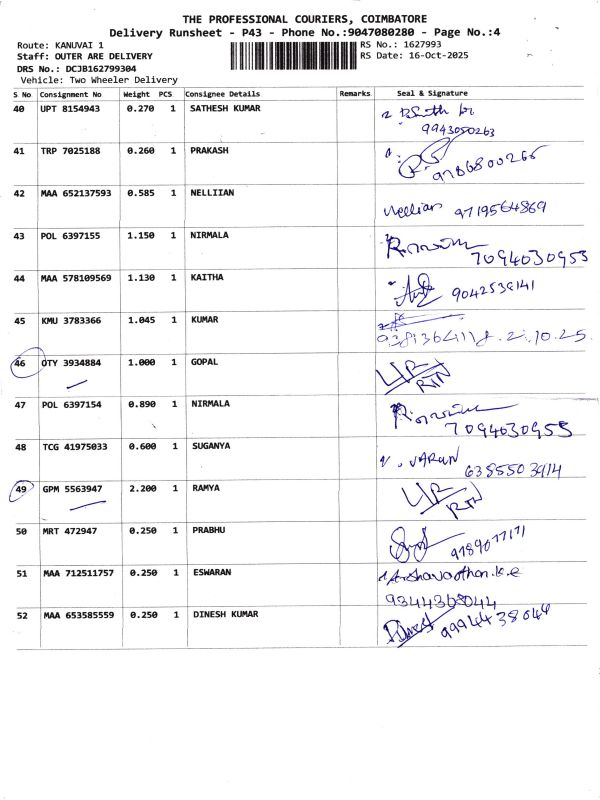 THE PROFESSIONAL COURIERS, COIMBATORE
Delivery Runsheet - P43 - Phone No.:9047080280 - Page No.:4
Route: KANUVAI 1
RS No.: 1627993
Staff: OUTER ARE DELIVERY
RS Date: 16-Oct-2025
DRS No.: DCJB162799304
Vehicle: Two Wheeler Delivery
S No Consignment No Weight PCS Consignee Details Remarks Seal & Signature
40 UPT 8154943 0.270 1 SATHESH KUMAR
9943050263
41 TRP 7025188 0.260 1 PRAKASH
9786800266
42 MAA 652137593 0.585 1 NELLIIAN Nellian 9719564869
43 POL 6397155 1.150 1 NIRMALA
7094030955
44 MAA 578109569 1.130 1 KAITHA 9042539141
45 KMU 3783366 1.045 1 KUMAR
46 OTY 3934884 1.000 1 GOPAL UR/RTN
47 POL 6397154 0.890 1 NIRMALA
7094030955
48 TCG 41975033 0.600 1 SUGANYA VARUN
6385503914
49 GPM 5563947 2.200 1 RAMYA UR/RTN
50 MRT 472947 0.250 1 PRABHU 9789077171
51 MAA 712511757 0.250 1 ESWARAN
9344368044
52 MAA 653585559 0.250 1 DINESH KUMAR Dinesh 9994438044